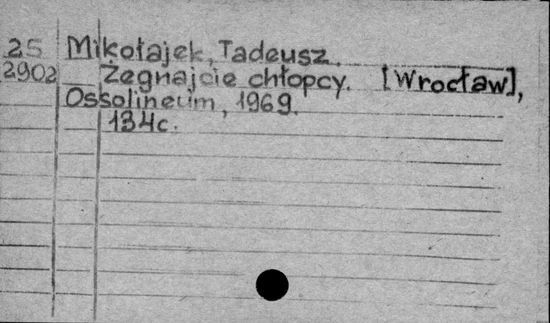 25 Mikołajek, Tadeusz.
2902 Żegnajcie chłopcy. [Wrocław],
Ossolineum, 1969.
134c.